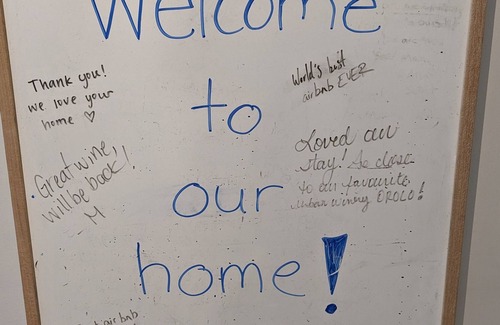 Welcome
to
our
home!
Thank you!
we love your
home ♡
Great wine,
will be back!
M
World's best
airbnb EVER
Loved our
stay! So close
to our favourite
urban winery OROLO!
airbnb